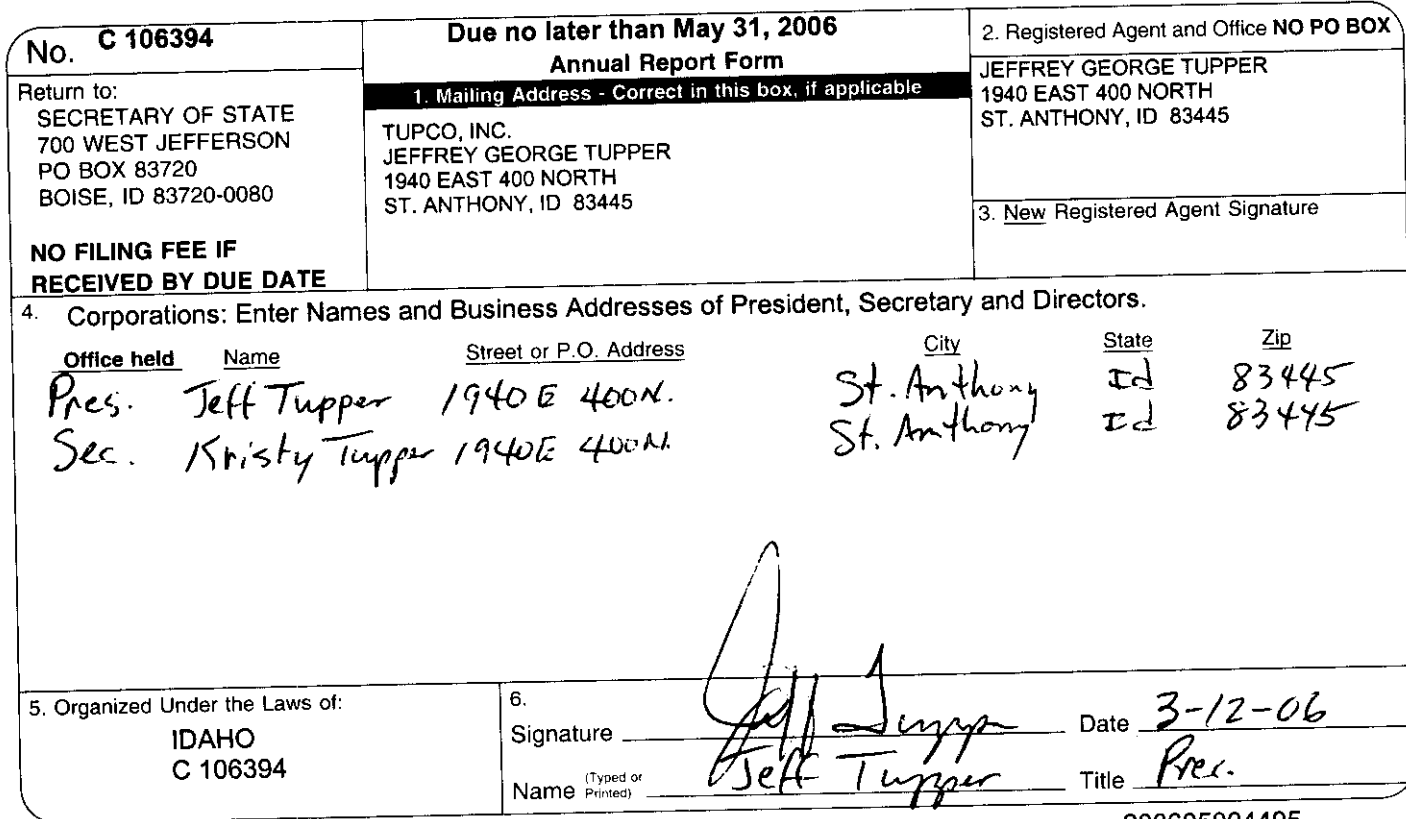 No. C 106394
Return to:
SECRETARY OF STATE
700 WEST JEFFERSON
PO BOX 83720
BOISE, ID 83720-0080
NO FILING FEE IF
RECEIVED BY DUE DATE
Due no later than May 31, 2006
Annual Report Form
1. Mailing Address - Correct in this box, if applicable
TUPCO, INC.
JEFFREY GEORGE TUPPER
1940 EAST 400 NORTH
ST. ANTHONY, ID 83445
2. Registered Agent and Office NO PO BOX
JEFFREY GEORGE TUPPER
1940 EAST 400 NORTH
ST. ANTHONY, ID 83445
3. New Registered Agent Signature
4. Corporations: Enter Names and Business Addresses of President, Secretary and Directors.
Office held Name Street or P.O. Address City State Zip
Pres. Jeff Tupper 1940 E 400 N. St. Anthony Id 83445
Sec. Kristy Tupper 1940 E 400 N. St. Anthony Id 83445
5. Organized Under the Laws of:
IDAHO
C 106394
6.
Signature Jeff Tupper Date 3-12-06
Name (Typed or Printed) Jeff Tupper Title Pres.